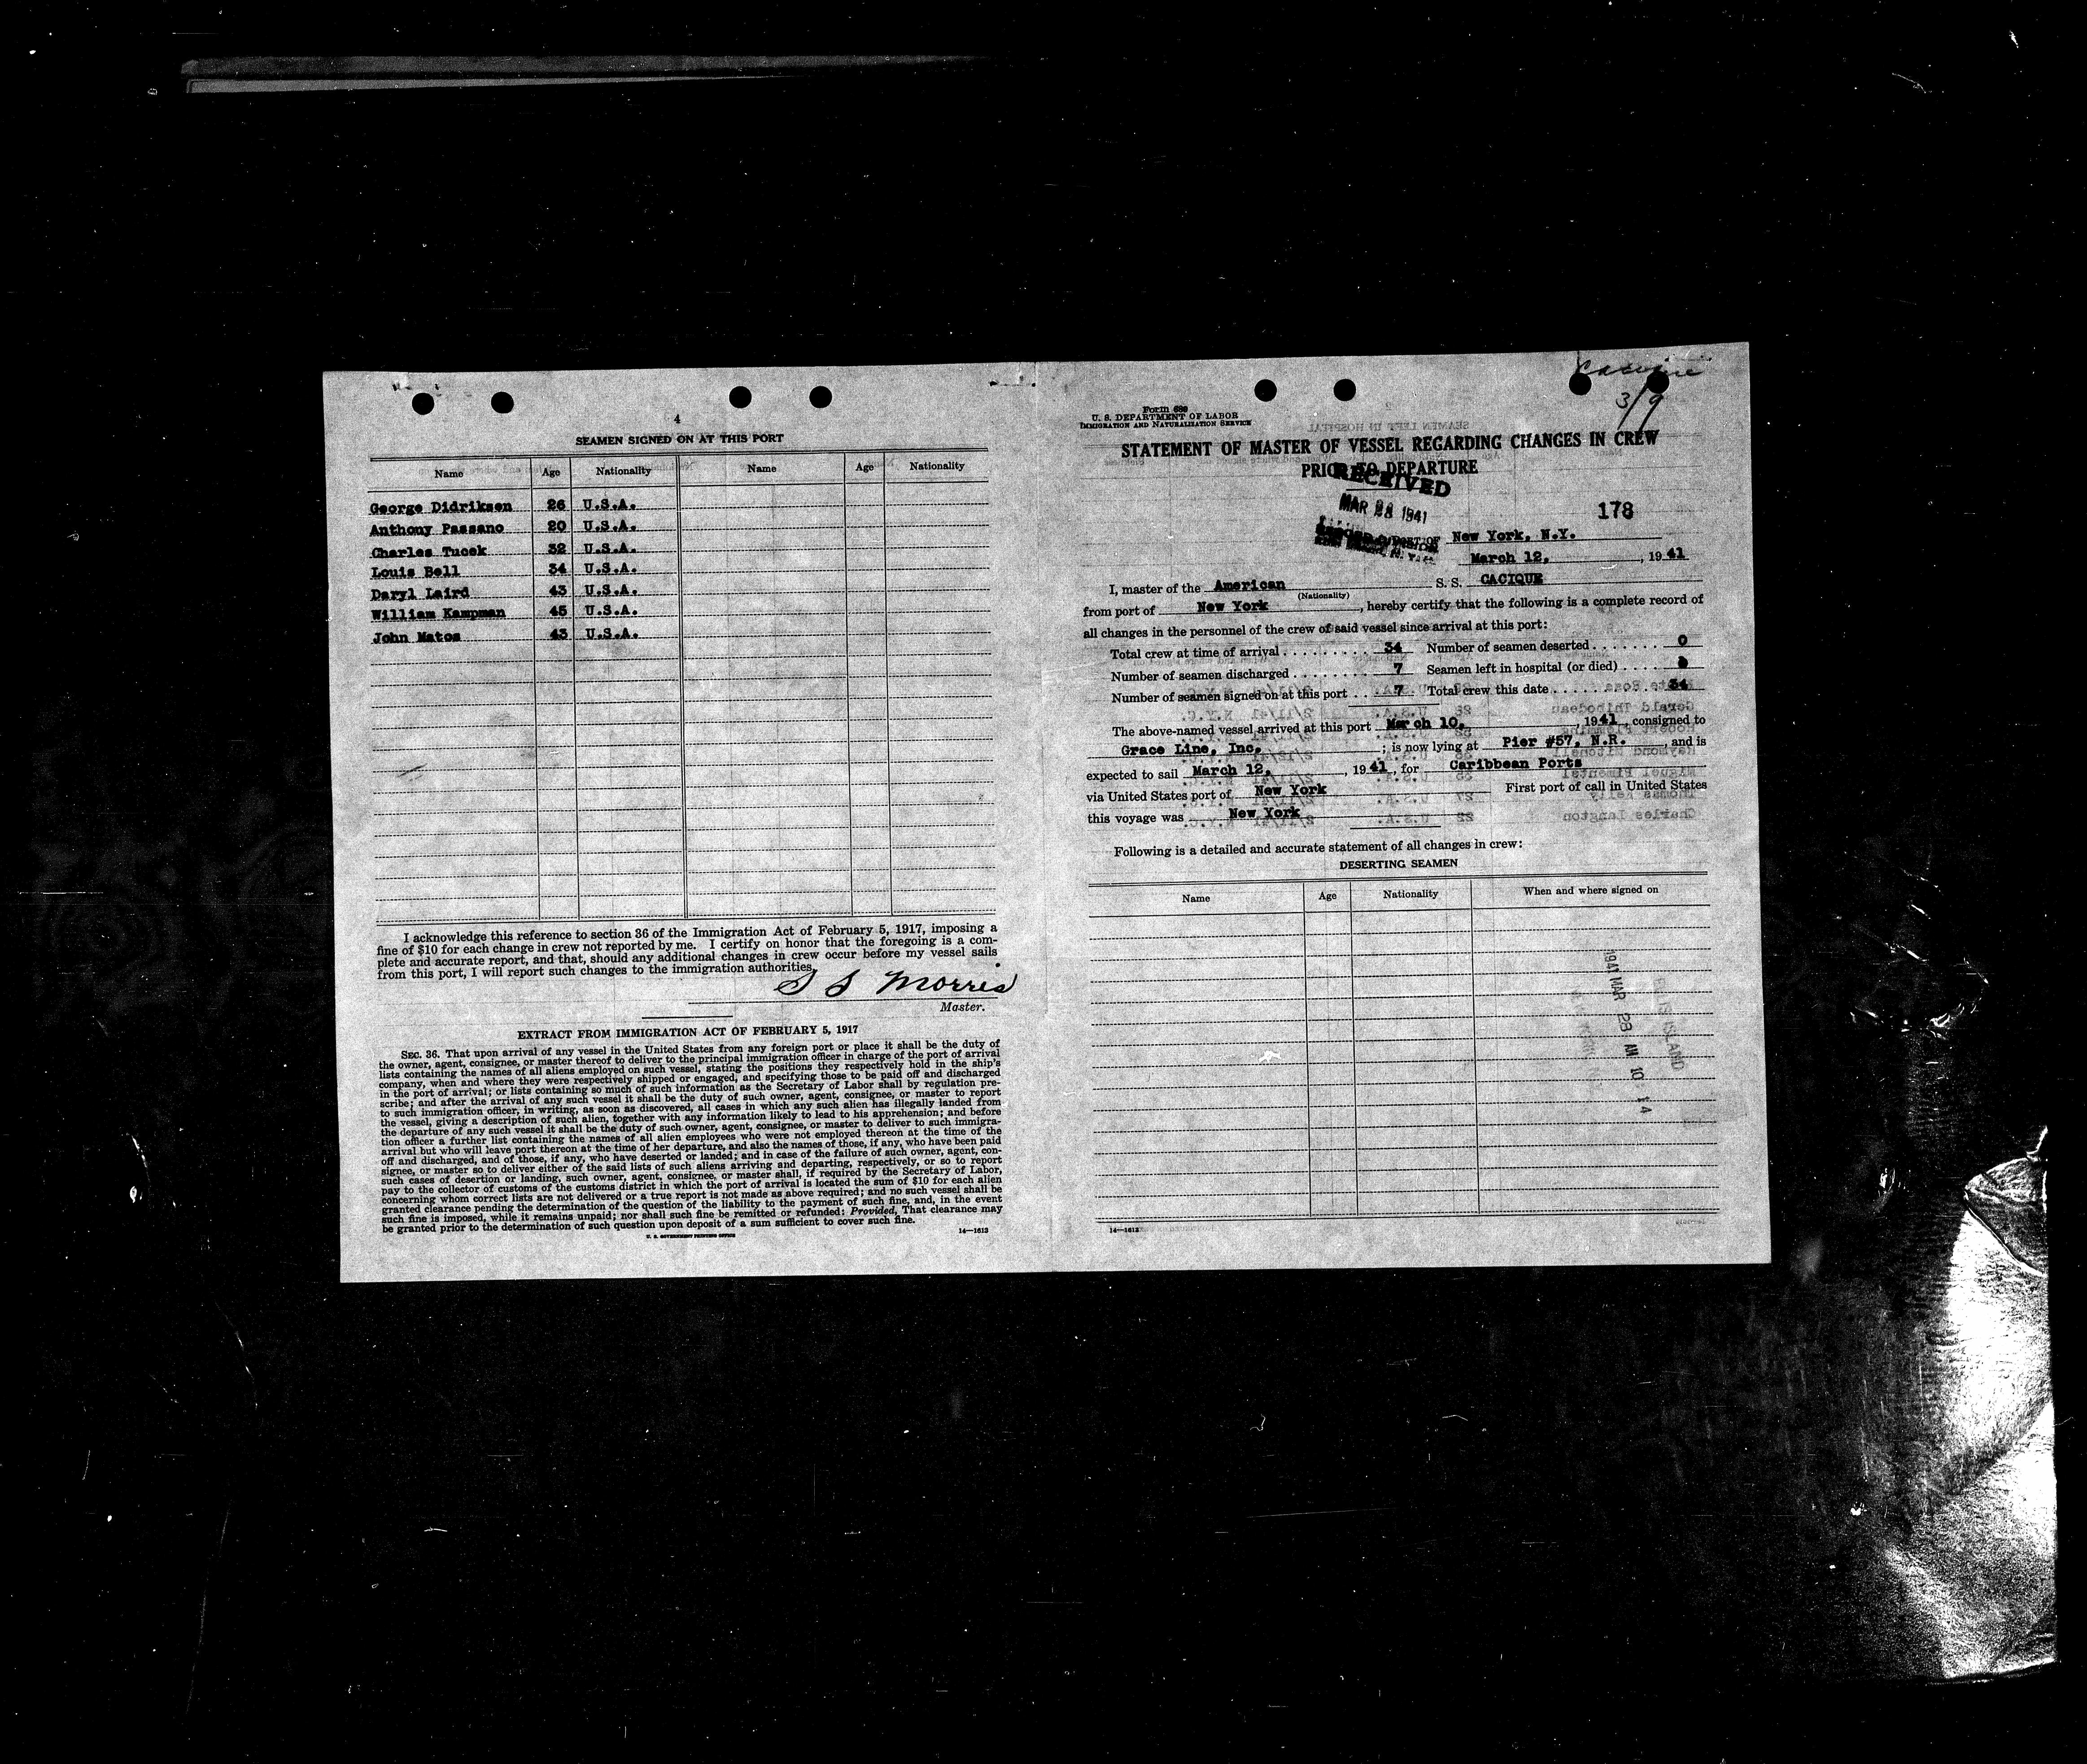 4
SEAMEN SIGNED ON AT THIS PORT
Name Age Nationality Name Age Nationality
George Didriksen 26 U.S.A.
Anthony Passano 20 U.S.A.
Charles Tucek 32 U.S.A.
Louis Bell 34 U.S.A.
Daryl Laird 43 U.S.A.
William Kampman 45 U.S.A.
John Matos 43 U.S.A.
I acknowledge this reference to section 36 of the Immigration Act of February 5, 1917, imposing a
fine of $10 for each change in crew not reported by me. I certify on honor that the foregoing is a com-
plete and accurate report, and that, should any additional changes in crew occur before my vessel sails
from this port, I will report such changes to the immigration authorities.
S S Morris
Master.
EXTRACT FROM IMMIGRATION ACT OF FEBRUARY 5, 1917
SEC. 36. That upon arrival of any vessel in the United States from any foreign port or place it shall be the duty of
the owner, agent, consignee, or master thereof to deliver to the principal immigration officer in charge of the port of arrival
lists containing the names of all aliens employed on such vessel, stating the positions they respectively hold in the ship's
company, when and where they were respectively shipped or engaged, and specifying those to be paid off and discharged
in the port of arrival; or lists containing so much of such information as the Secretary of Labor shall by regulation pre-
scribe; and after the arrival of any such vessel it shall be the duty of such owner, agent, consignee, or master to report
to such immigration officer, in writing, as soon as discovered, all cases in which any such alien has illegally landed from
the vessel, giving a description of such alien, together with any information likely to lead to his apprehension; and before
the departure of any such vessel it shall be the duty of such owner, agent, consignee, or master to deliver to such immigra-
tion officer a further list containing the names of all alien employees who were not employed thereon at the time of the
arrival but who will leave port thereon at the time of her departure, and also the names of those, if any, who have been paid
off and discharged, and of those, if any, who have deserted or landed; and in case of the failure of such owner, agent, con-
signee, or master so to deliver either of the said lists of such aliens arriving and departing, respectively, or so to report
such cases of desertion or landing, such owner, agent, consignee, or master shall, if required by the Secretary of Labor,
pay to the collector of customs of the customs district in which the port of arrival is located the sum of $10 for each alien
concerning whom correct lists are not delivered or a true report is not made as above required; and no such vessel shall be
granted clearance pending the determination of the question of the liability to the payment of such fine, and, in the event
such fine is imposed, while it remains unpaid; nor shall such fine be remitted or refunded: Provided, That clearance may
be granted prior to the determination of such question upon deposit of a sum sufficient to cover such fine.
U. S. GOVERNMENT PRINTING OFFICE 14—1613
Cacique
3/9
Form 689
U. S. DEPARTMENT OF LABOR
IMMIGRATION AND NATURALIZATION SERVICE
STATEMENT OF MASTER OF VESSEL REGARDING CHANGES IN CREW
PRIOR TO DEPARTURE
RECEIVED
MAR 28 1941
178
PORT OF New York, N.Y.
March 12, , 1941
I, master of the American S. S. CACIQUE
(Nationality)
from port of New York , hereby certify that the following is a complete record of
all changes in the personnel of the crew of said vessel since arrival at this port:
Total crew at time of arrival . . . . . . . . . 34 Number of seamen deserted . . . . . . . 0
Number of seamen discharged . . . . . . . . 7 Seamen left in hospital (or died) . . . .
Number of seamen signed on at this port . . 7 Total crew this date . . . . . . . . 34
The above-named vessel arrived at this port March 10, , 1941, consigned to
Grace Line, Inc. ; is now lying at Pier #57, N.R. , and is
expected to sail March 12, , 1941, for Caribbean Ports
via United States port of New York First port of call in United States
this voyage was New York
Following is a detailed and accurate statement of all changes in crew:
DESERTING SEAMEN
Name Age Nationality When and where signed on
1941 MAR 28 AM 10 14
ELLIS ISLAND
14—1613